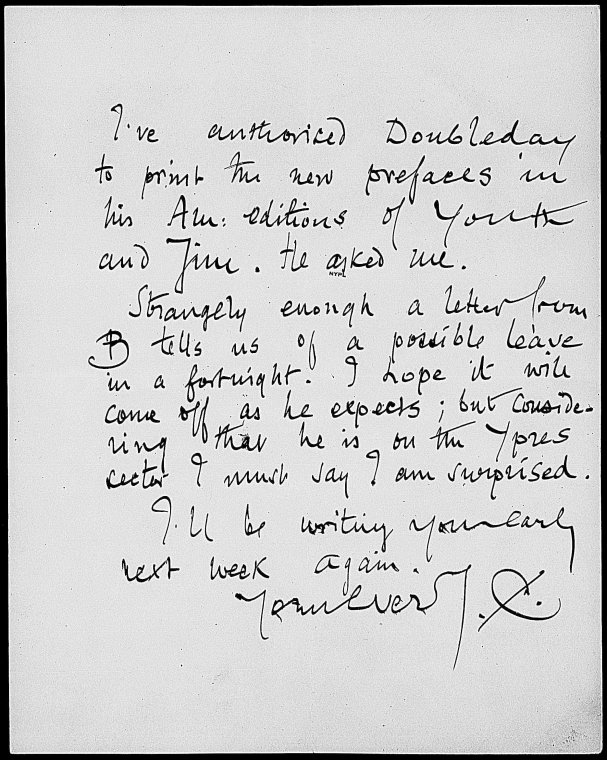 I've authorised Doubleday
to print the new prefaces in
his Am: editions of Youth
and Jim. He asked me.
NYPL
Strangely enough a letter from
B tells us of a possible leave
in a fortnight. I hope it will
come off as he expects; but conside-
ring that he is on the Ypres
sector I must say I am surprised.
I'll be writing you early
next week again.
Yours ever J. C.